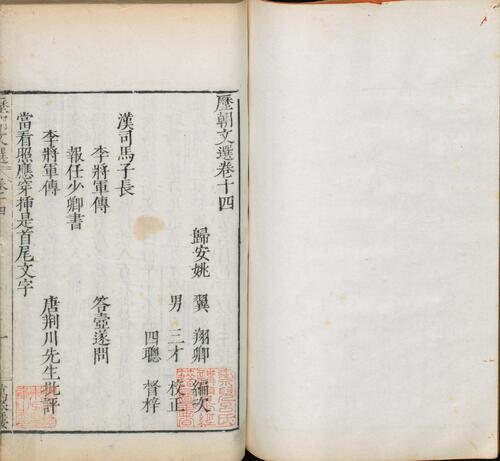 歷朝文選卷十四
歸安姚 翼 翔卿 編次
男 三才 校正
四聰 督梓
漢司馬子長
李將軍傳 答壺遂問
報任少卿書
李將軍傳 唐荆川先生批評
當看照應穿插是首尾文字